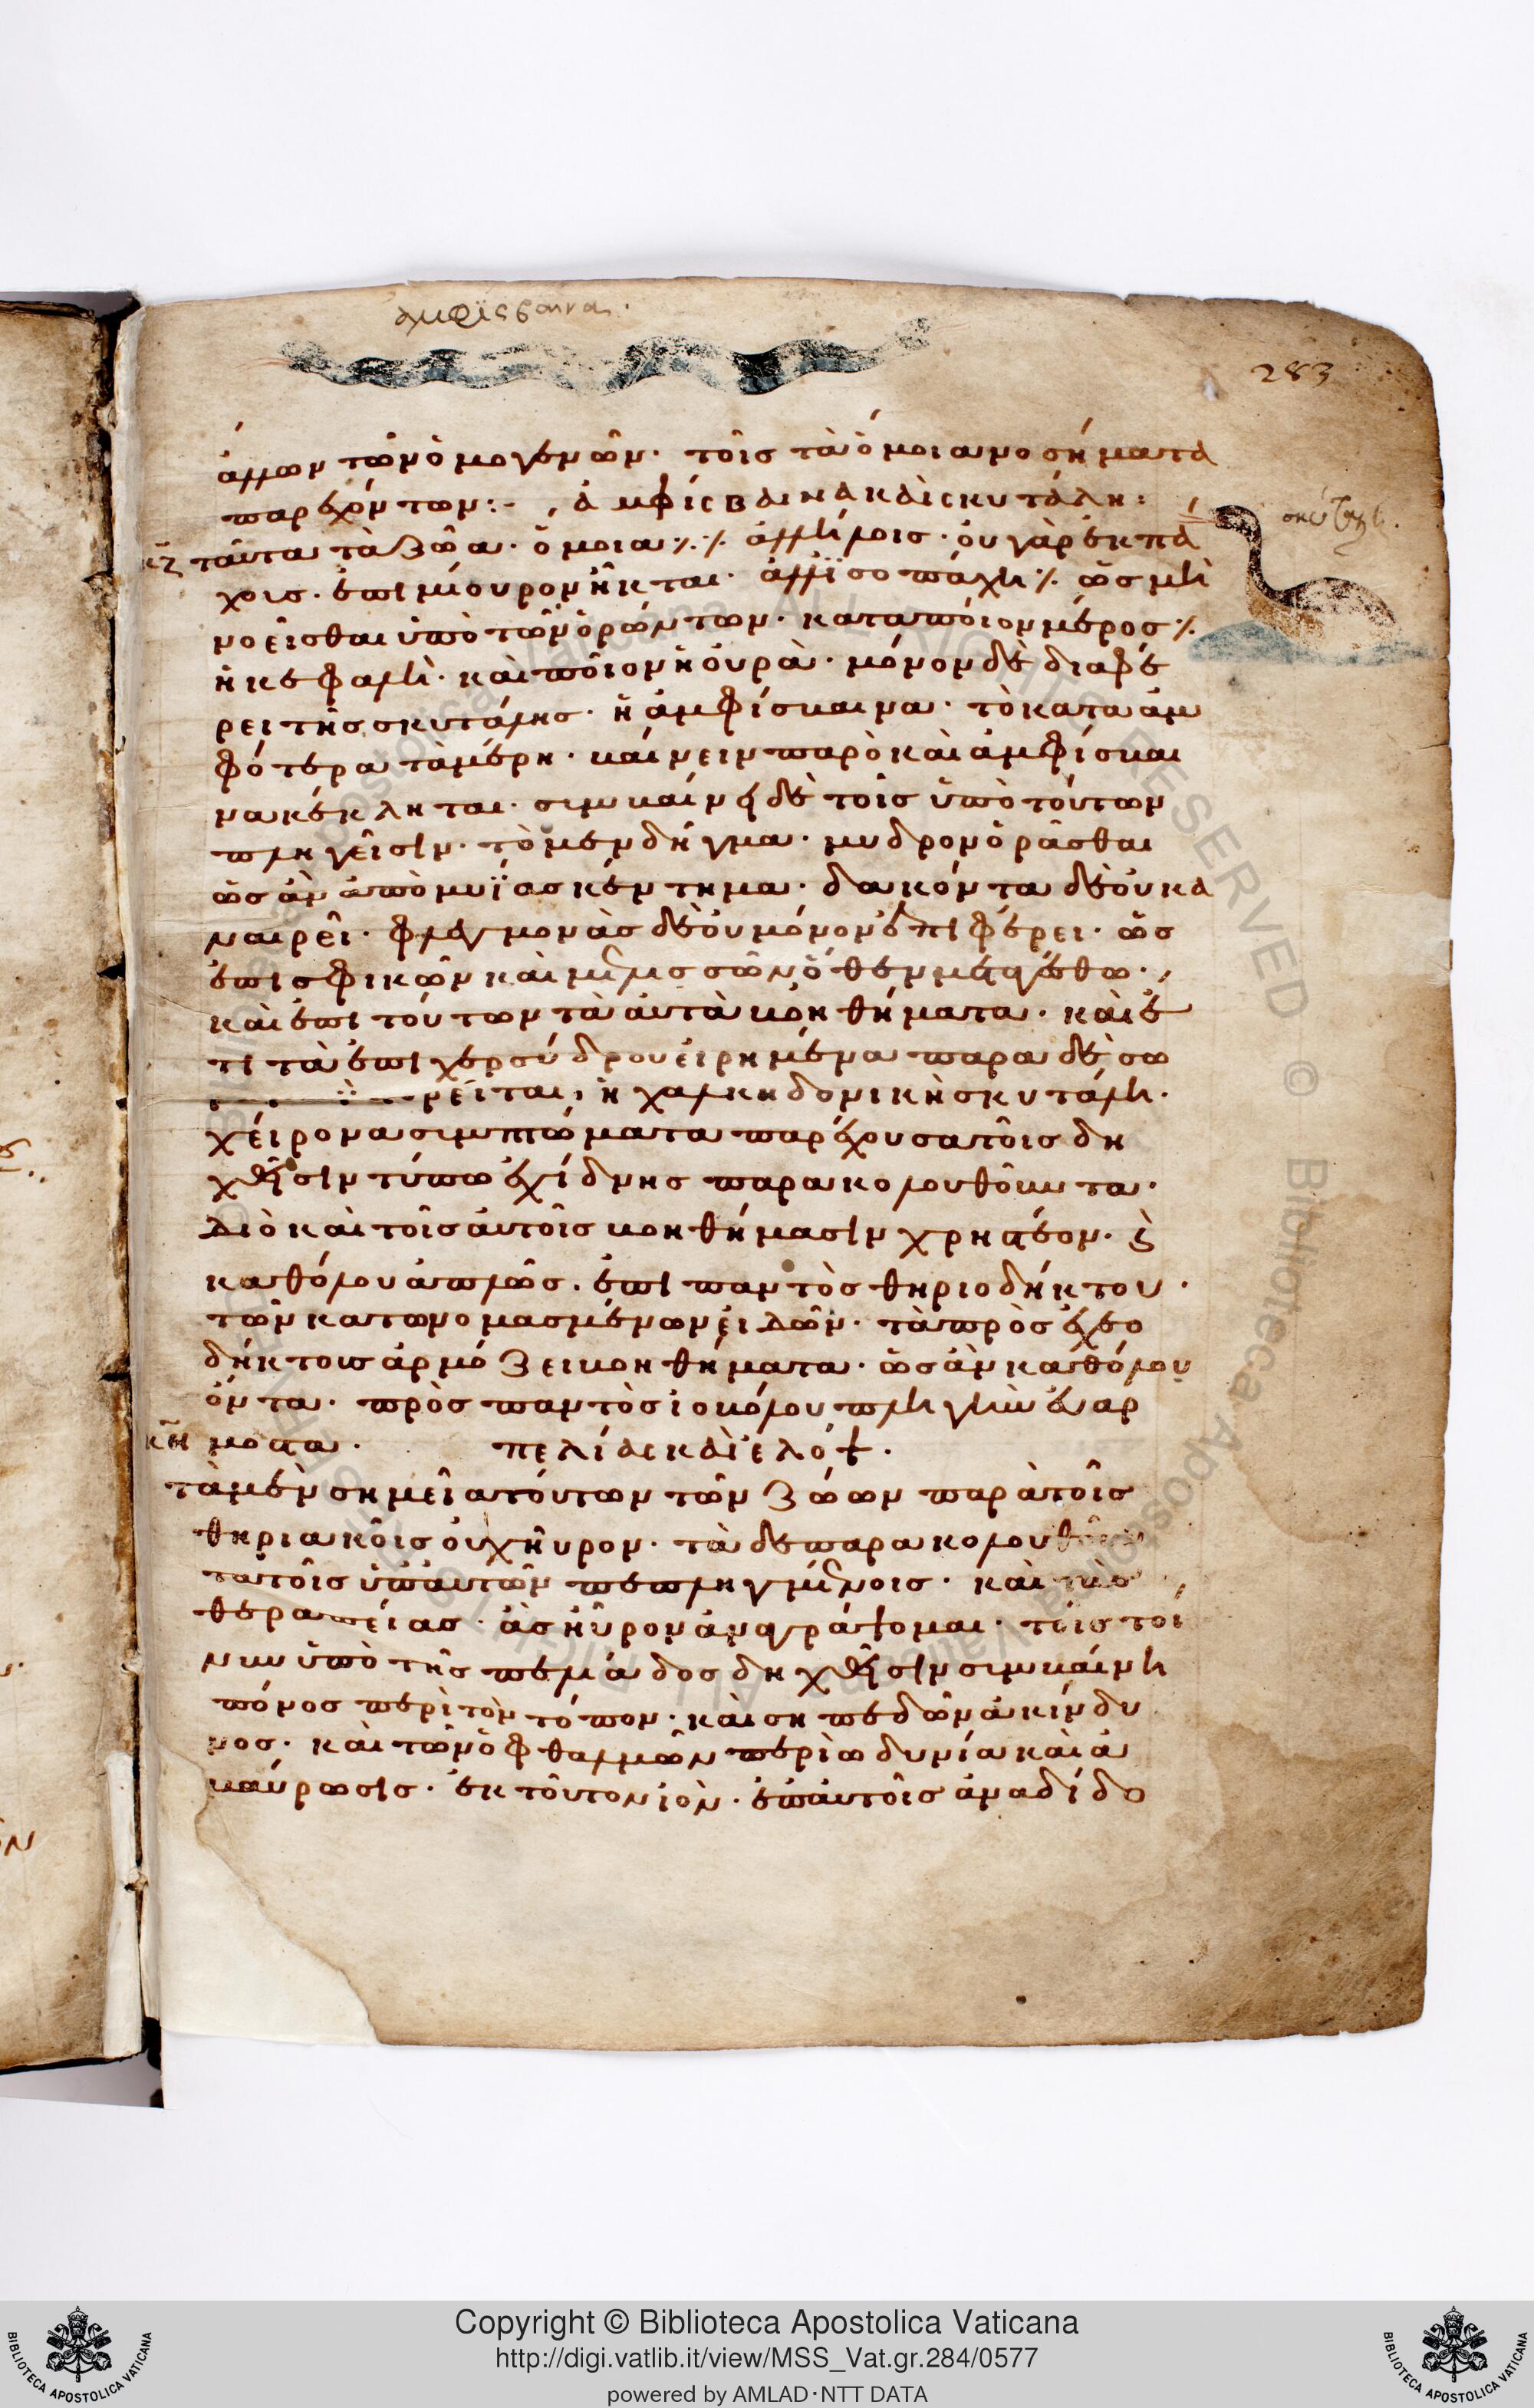 ἀμφίσβαινα.
283
ἄλλων τῶν ὁμογενῶν. τοῖς τὰ ὅμοια νοσήματα
παρεχόντων:- ἀμφίσβαινα καὶ σκυτάλη:
κζ ταῦτα τὰ ζῶα. ὅμοια ⁒ ⁒ ἀλλήλοις. οὐ γὰρ ἐκ πά
σκυτάλη.
χους. ἐπὶ μίουρον ἧκται. ἀλλ ἰσοπαχῆ ⁒ ὡς μὴ
νοεῖσθαι ὑπὸ τῶν ὁρώντων. κατα ποῖον μέρος ⁒
ἡ κεφαλὴ. καὶ ποῖον ἡ οὐρὰ. μόνον δὲ διαφέ
ρει τῆς σκυτάλης. ἡ ἀμφίσβαινα. τὸ κατα ἀμ
φότερα τὰ μέρη. βαίνειν παρὸ καὶ ἀμφίσβαι
να κέκληται. συμβαίνει δὲ τοῖς ὑπὸ τούτων
πληγεῖσιν. τὸ μὲν δῆγμα. μυδρον ὁρᾶσθαι
ὡς ἂν ἀπὸ μυΐας κέντημα. δακόντα δὲ οὐκ ἀ
ναιρεῖ. φλεγμονὰς δὲ οὐ μόνον ἐπιφέρει. ὡς
ἐπι σφικῶν καὶ μελισσῶν ὅθεν
καὶ ἐπι τούτων τὰ αὐτὰ βοηθήματα. καὶ ἔ
τι τὰ ἐπι χερσύδρου εἰρημένα παρα δὲ σω
ρεῖται, ἡ χαλκηδονικὴ σκυτάλη.
χείρονα συμπτώματα παρέχουσα τοῖς δη
χθεῖσιν τύπω ἐχίδνης παρακολουθοῦντα.
διὸ καὶ τοῖς αὐτοῖς βοηθήμασιν χρηστέον. ϛ
καθόλου ἁπλῶς. ἐπι παντὸς θηριοδήκτου.
τῶν κατωνομασμένων εἰδῶν. τὰ πρὸς ἐχεο
δήκτους ἁρμόζει βοηθήματα. ὡς ἂν καθόλου
ὄντα. πρὸς παντὸς ἰοβόλου πληγὴν ἐναρ
κη μοστα. πελίας καὶ ἔλοψ.
τὰ μὲν σημεῖα τούτων τῶν ζώων παρὰ τοῖς
θηριακοῖς οὐχ ηὗρον. τὰ δε παρακολουθοῦν
τα τοῖς ὑπ αὐτῶν πεπληγμένοις. καὶ τὰς
θεραπείας. ἃς ηὗρον ἀναγράψομαι. τοῖς τοί
νυν ὑπὸ τῆς πελιάδος δηχθεῖσιν συμβαίνη
πόνος περὶ τὸν τόπον. καὶ σηπεδὼν ἀκίνδυ
νος. καὶ τῶν ὀφθαλμῶν περὶωδυνία καὶ ἀ
μαύρωσις. ἐκ τοῦ τον ἰὸν. ἐπ αὐτοῖς ἀναδίδο
Copyright © Biblioteca Apostolica Vaticana
http://digi.vatlib.it/view/MSS_Vat.gr.284/0577
powered by AMLAD·NTT DATA
BIBLIOTECA APOSTOLICA VATICANA
BIBLIOTECA APOSTOLICA VATICANA